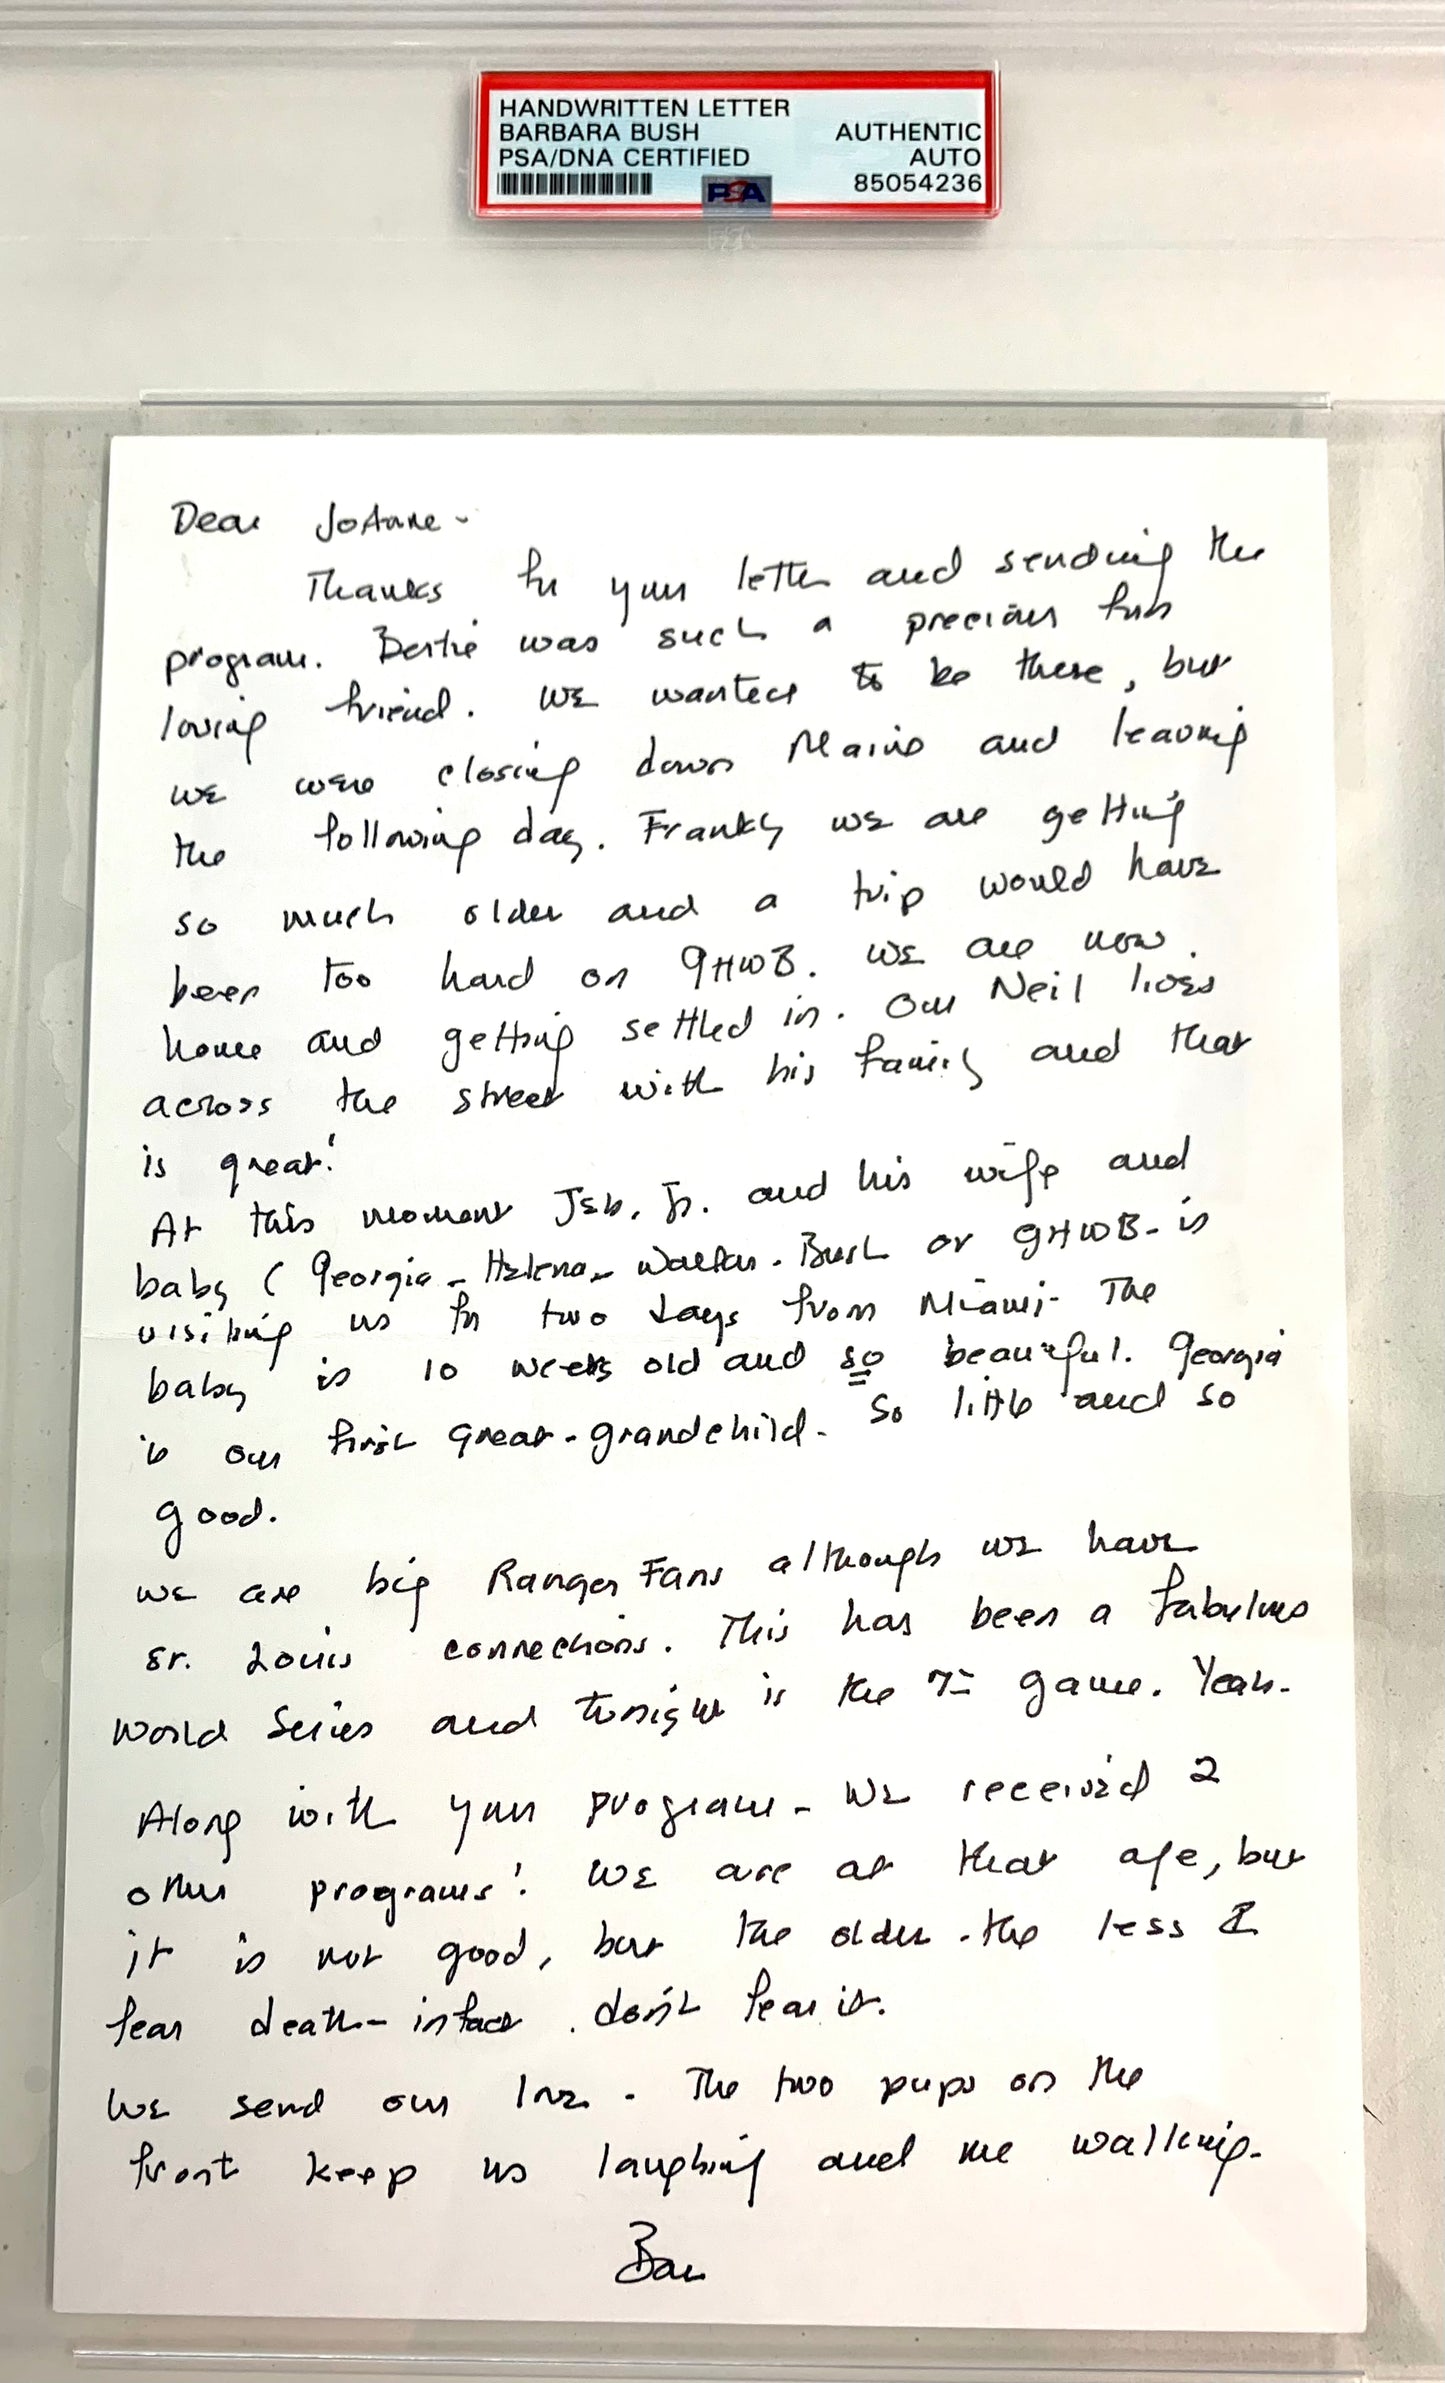 HANDWRITTEN LETTER
BARBARA BUSH AUTHENTIC
PSA/DNA CERTIFIED AUTO
PSA 85054236
Dear JoAnne -
Thanks for your letter and sending the
program. Bertie was such a precious fun
loving friend. We wanted to be there, but
we were closing down Maine and leaving
the following day. Frankly we are getting
so much older and a trip would have
been too hard on GHWB. We are now
home and getting settled in. Our Neil lives
across the street with his family and that
is great!
At this moment Jeb, Jr. and his wife and
baby (Georgia - Helena - Walker - Bush or GHWB - is
visiting us for two days from Miami - The
baby is 10 weeks old and so beautiful. Georgia
is our first great-grandchild - So little and so
good.
We are big Ranger Fans although we have
St. Louis connections. This has been a fabulous
World Series and tonight is the 7th game. Yeah -
Along with your program - We received 2
other programs! We are at that age, but
it is not good, but the older - the less I
fear death - in fact . don't fear it.
We send our love - The two pups on the
front keep us laughing and me walking -
Bar